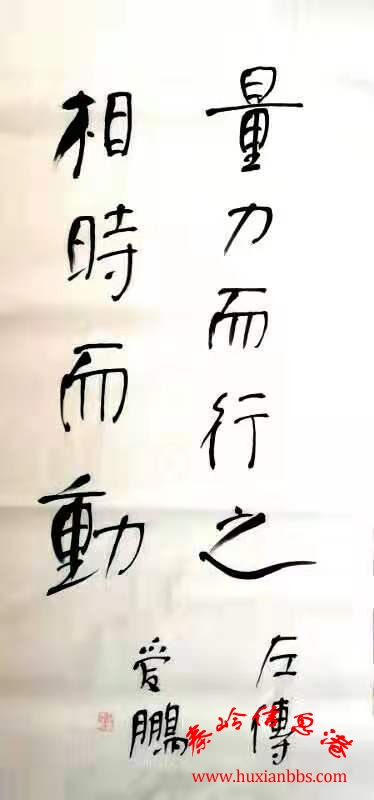 量力而行之
相時而動
左傳
爱鵬
秦岭信息港
www.huxianbbs.com